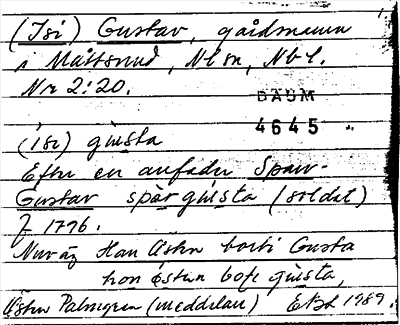 (Isi) Gustav, gårdsnamn
i Måttsund, Nln, Nbl.
Nr 2:20.
DAUM
4645
(isi) gusta
Efter en anfader Sparr-
Gustav spàr gusta (soldat)
f 1796.
Nuv äg Han Östen bor bi Gusta
han östen bofi gusta,
Östen Palmgren (meddelare) EBL 1989.